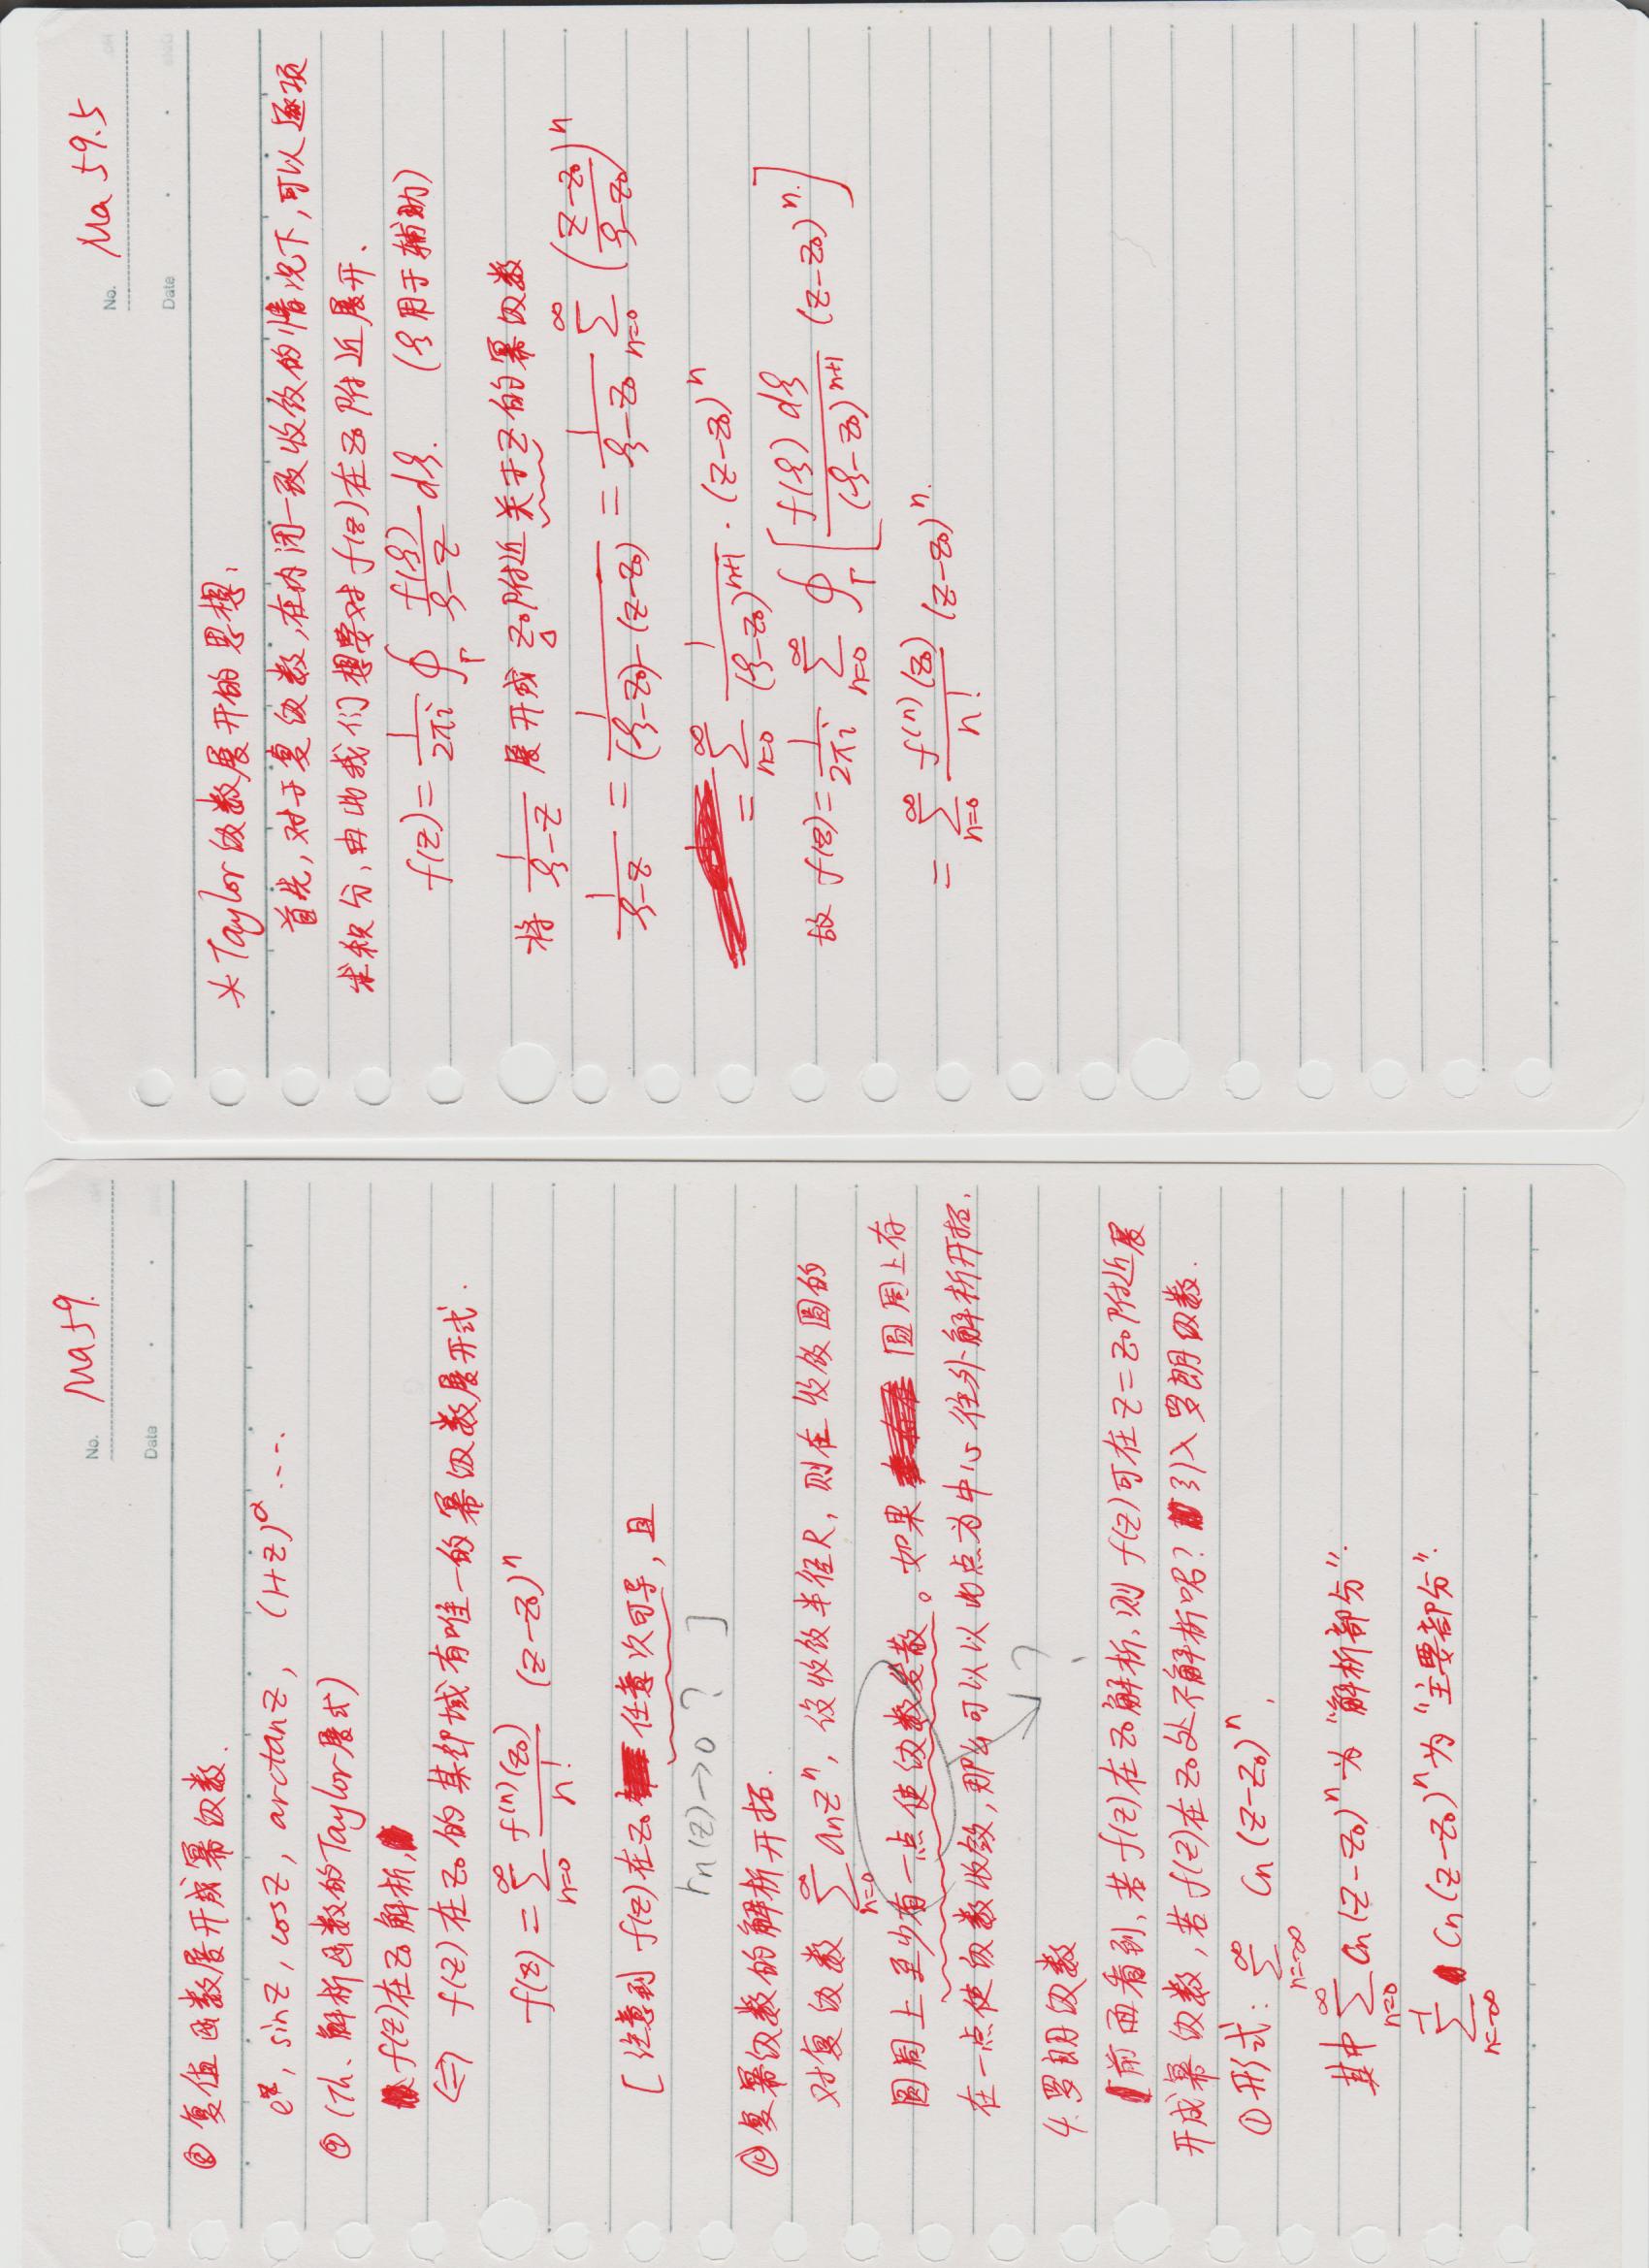 No. Ma59.
Date
⑧ 复值函数展开成幂级数.
e^z, sinz, cosz, arctanz, (1+z)^α ....
⑨ (Th. 解析函数的Taylor展式)
f(z)在z₀解析,
⟺ f(z)在z₀的某邻域有唯一的幂级数展开式.
f(z) = ∑_{n=0}^{∞} f^{(n)}(z₀)/n! (z-z₀)^n
[注意到 f(z)在z₀ 任意次可导, 且
r_n(z)→0 ? ]
⑩ 复幂级数的解析开拓.
对复级数 ∑_{n=0}^{∞} a_n z^n, 设收敛半径R, 则在收敛圆的
圆周上至少有一点使级数发散。如果 圆周上存
在一点使级数收敛, 那么可以以此点为中心往外解析开拓.
?
4. 罗朗级数
前面看到, 若f(z)在z₀解析, 则f(z)可在z=z₀附近展
开成幂级数, 若f(z)在z₀处不解析呢? 引入罗朗级数.
① 形式: ∑_{n=-∞}^{∞} C_n (z-z₀)^n,
其中 ∑_{n=0}^{∞} C_n (z-z₀)^n 为 "解析部分".
∑_{n=-∞}^{-1} C_n (z-z₀)^n 为 "主要部分".
No. Ma 59.5
Date
* Taylor级数展开的思想:
首先, 对于复级数, 在内闭一致收敛的情况下, 可以逐项
求积分, 由此我们想要对f(z)在z₀附近展开.
f(z) = 1/(2πi) ∮_Γ f(ζ)/(ζ-z) dζ. (ζ用于辅助)
将 1/(ζ-z) 展开成 z₀附近关于z的幂级数
1/(ζ-z) = 1/((ζ-z₀)-(z-z₀)) = 1/(ζ-z₀) ∑_{n=0}^{∞} ((z-z₀)/(ζ-z₀))^n
= ∑_{n=0}^{∞} 1/(ζ-z₀)^{n+1} · (z-z₀)^n
故 f(z) = 1/(2πi) ∑_{n=0}^{∞} ∮_Γ [f(ζ) dζ/(ζ-z₀)^{n+1} (z-z₀)^n.]
= ∑_{n=0}^{∞} f^{(n)}(z₀)/n! (z-z₀)^n.